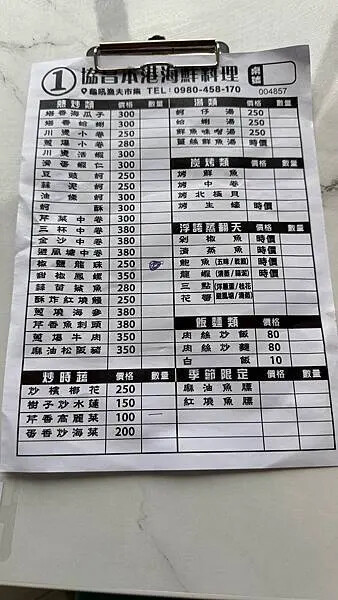 ① 協吉本港海鮮料理 桌號
龜吼漁夫市集 TEL: 0980-458-170 004857
熱炒類 價格 數量
塔香海瓜子 300
塔香蛤蜊 300
川燙小卷 250
蔥爆小卷 280
川燙活蝦 300
滑蛋蝦仁 300
豆豉蚵 250
蒜泥蚵 250
油條蚵 300
蚵酥 300
芹菜中卷 350
三杯中卷 380
金沙中卷 380
避風塘中卷 380
椒鹽龍珠 250
甜椒鳳螺 350
蒜苗鯊魚 280
酥炸紅燒鰻 250
蔥燒海參 380
芹香魚刺頭 380
蔥爆牛肉 350
麻油松阪豬 350
炒時蔬 價格 數量
炒檳榔花 250
樹子炒水蓮 150
芹香高麗菜 100 一
蛋香炒海菜 200
湯類 價格 數量
蚵仔湯 250
蛤蜊湯 250
鮮魚味噌湯 250
薑絲鮮魚湯 時價
炭烤類 價格 數量
烤鮮魚
烤中卷
烤北極貝
烤生蠔 時價
浮誇蒸翻天 價格 數量
剁椒魚 時價
清蒸魚 時價
鮑魚(五味/乾煎) 時價
龍蝦(清蒸/蒜泥) 時價
三點(洋蔥蛋/桂花
花蟹 避風塘/清蒸)
飯麵類 價格 數量
肉絲炒飯 80
肉絲炒麵 80
白飯 10
季節限定 價格 數量
麻油魚膘
紅燒魚膘